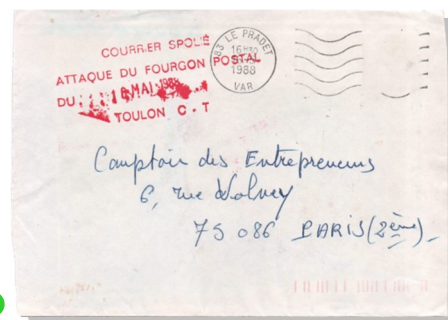 COURRIER SPOLIÉ
ATTAQUE DU FOURGON POSTAL
DU 18 MAI 1988
TOULON C.T
83 LE PRADET
16H30
1988
VAR
Comptoir des Entrepreneurs
6, rue Volney
75 086 PARIS (2ème)